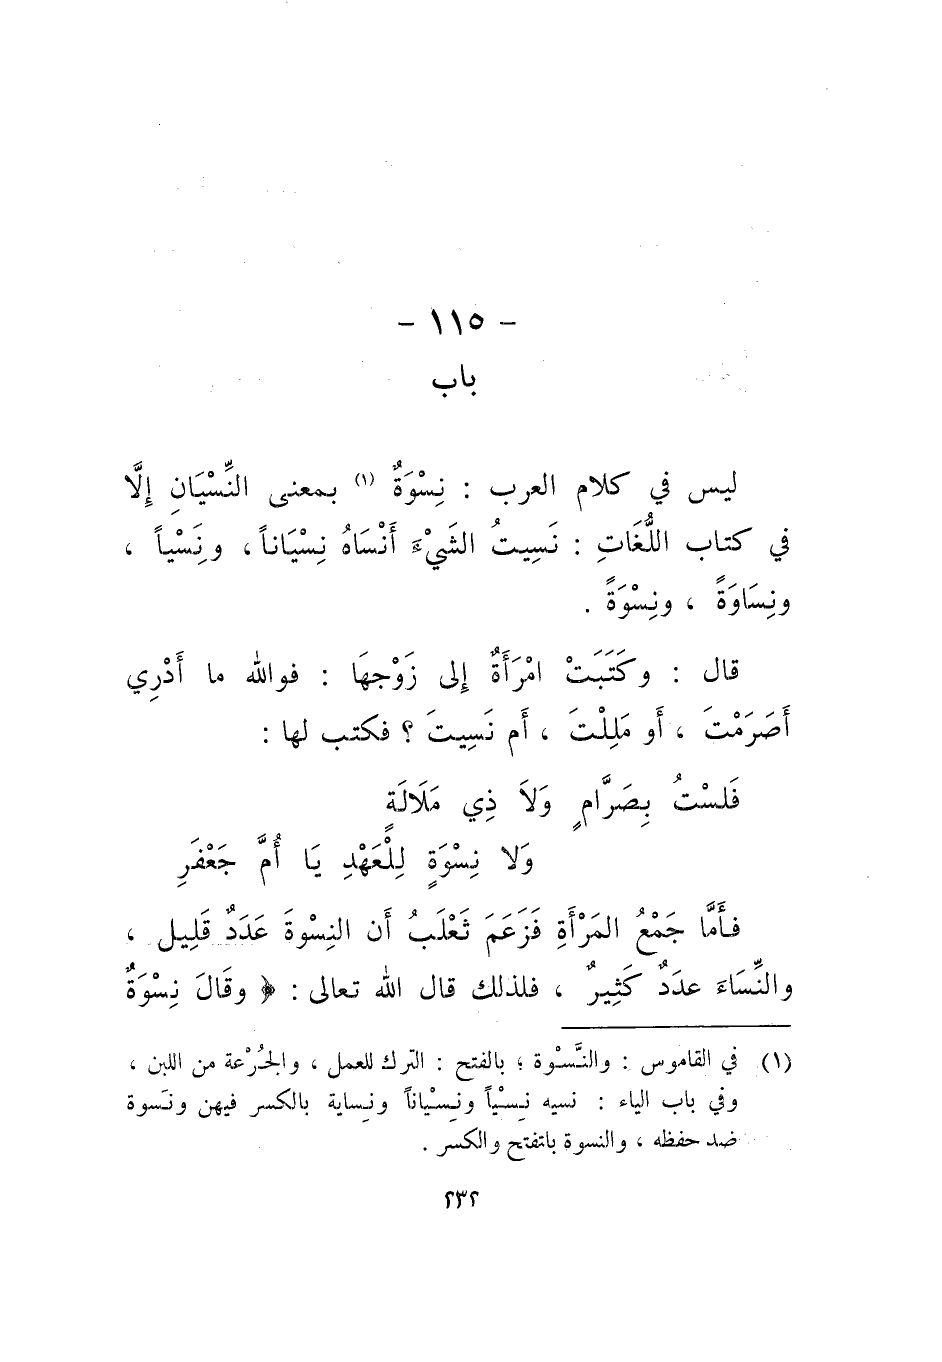 - ١١٥ -
باب
ليس في كلام العرب : نِسْوَةٌ (١) بمعنى النِّسْيَانِ إِلَّا
في كتاب اللُّغَاتِ : نَسِيتُ الشَيْءَ أَنْسَاهُ نِسْيَاناً ، ونِسْياً ،
ونِسَاوَةً ، ونِسْوَةً .
قال : وكَتَبَتْ امْرَأَةٌ إِلى زَوْجهَا : فوالله ما أَدْرِي
أَصَرَمْتَ ، أَو مَلِلْتَ ، أَم نَسِيتَ ؟ فكتب لها :
فَلسْتُ بِصَرَّامٍ وَلاَ ذِي مَلَالَةٍ
وَلا نِسْوَةٍ لِلْعَهْدِ يَا أُمَّ جَعْفَرِ
فأَمَّا جَمْعُ المَرْأَةِ فَزَعَمَ ثَعْلَبُ أَن النِسْوةَ عَدَدٌ قَلِيل ،
والنِّسَاءَ عدَدٌ كَثِيرٌ ، فلذلك قال الله تعالى : ﴿ وقَالَ نِسْوَةٌ
(١) في القاموس : والنَّسْوة ؛ بالفتح : الترك للعمل ، والجُرْعة من اللبن ،
وفي باب الياء : نسيه نِسْياً ونِسْياناً ونِساية بالكسر فيهن ونَسوة
ضد حفظه ، والنسوة بالفتح والكسر .
٢٣٢